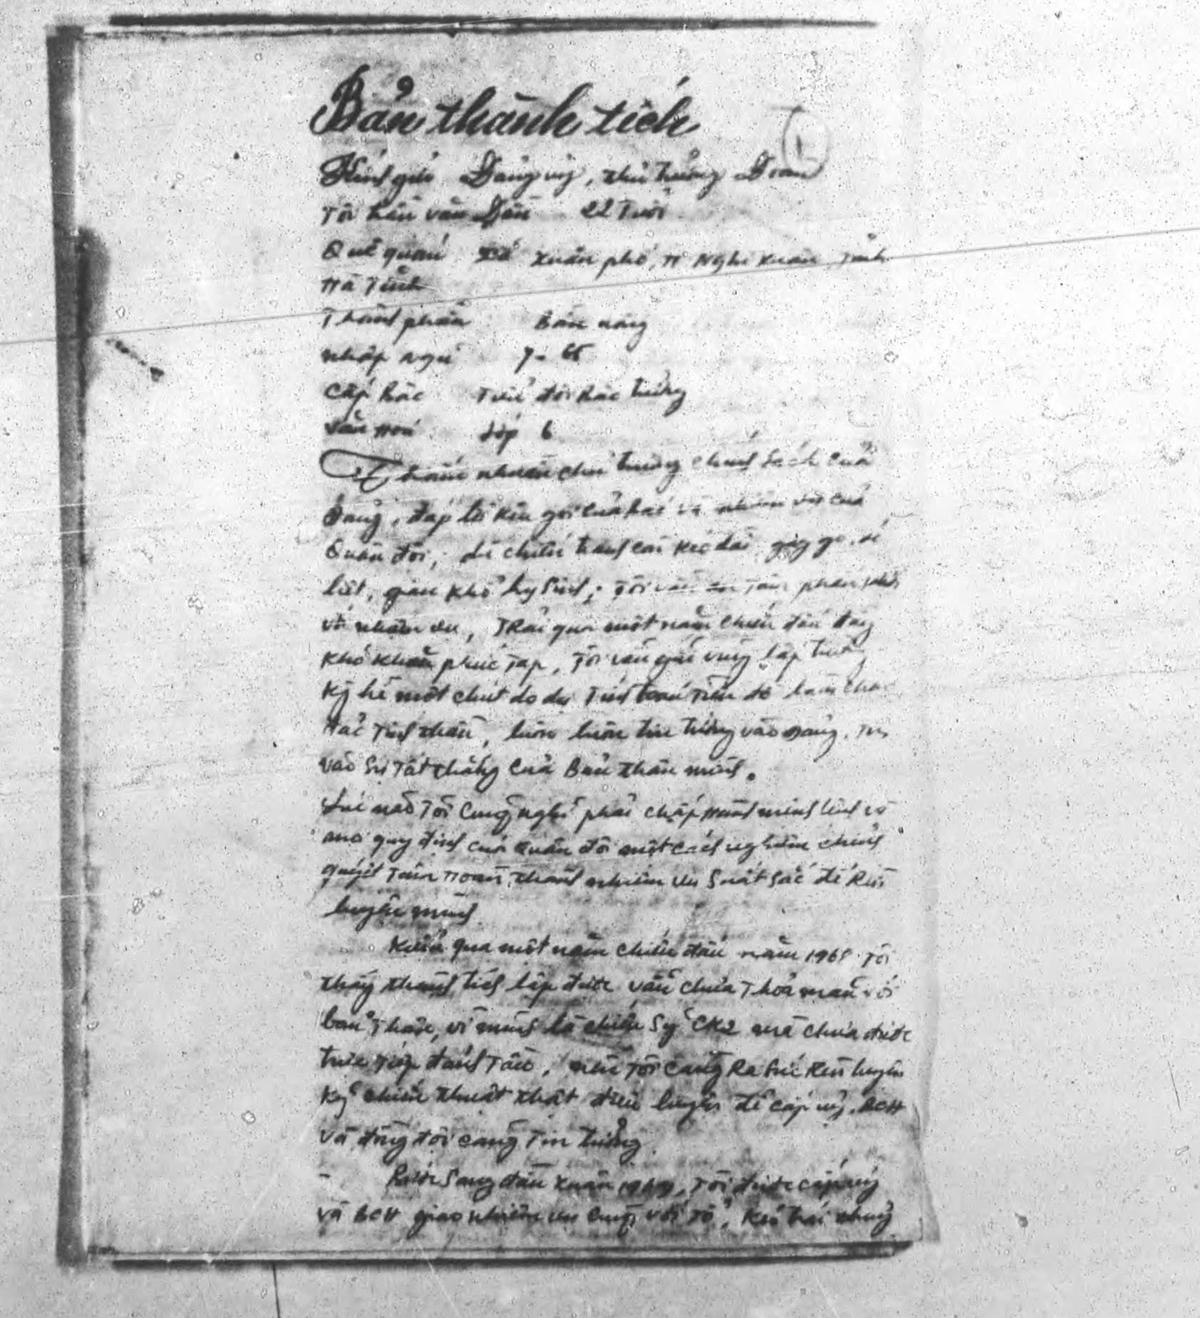 Bản thành tích
1
Kính gửi Đảng ủy, thủ trưởng Đoàn
Tôi văn Dần 22 Tuổi
Quê quán Xã Xuân phổ, H Nghi Xuân, Tỉnh
Hà Tĩnh
Thành phần Bần nông
nhập ngũ 7-65
Cấp bậc Tiểu đội bậc trưởng
Văn Hoá Lớp 6
Thấm nhuần chủ trương chính sách của
Đảng, đáp lời kêu gọi của bác và nhiệm vụ của
Quân đội, dù chiến tranh còn kéo dài, gay go, ác
liệt, gian khổ hy sinh; Tôi vẫn an tâm phấn khởi
với nhiệm vụ, Trải qua một năm chiến đấu đầy
khó khăn phức tạp, Tôi vẫn giữ vững lập trường
Kg hề một chút do dự Tính toán Tiền đồ làm cho
Tinh thần, luôn luôn tin tưởng vào Đảng, Tin
vào Sự Tất thắng Của Bản thân mình.
Lúc nào Tôi Cũng nghĩ phải chấp hành mệnh lệnh và
mọi quy định của Quân đội một cách nghiêm chỉnh
quyết Tâm Hoàn thành nhiệm vụ Suất Sắc để Rèn
luyện mình
qua một năm chiến đấu năm 1968 Tôi
thấy thành tích lập được vẫn chưa Thỏa mãn với
bản Thân, vì mình là chiến Sỹ CK2 mà chưa được
trực tiếp đánh Tàu, nên Tôi càng Ra Sức Rèn luyện
Kỹ chiến thuật thật điêu luyện để cấp ủy, BCH
và đồng đội càng Tin tưởng
- Bước Sang đầu Xuân 1969, Tôi được cấp ủy
và BCH giao nhiệm vụ cùng với Tổ,